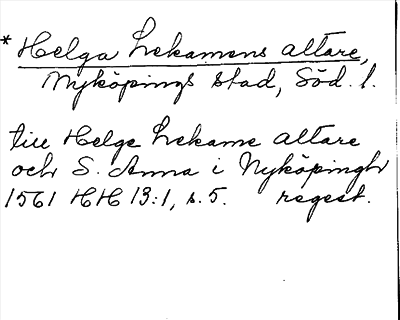 * Helga Lekamens altare,
Nyköpings stad, Söd. l.
till Helge Lekame altare
och S. Anna i Nyköpingh
1561 HH 13:1, s. 5. regest.